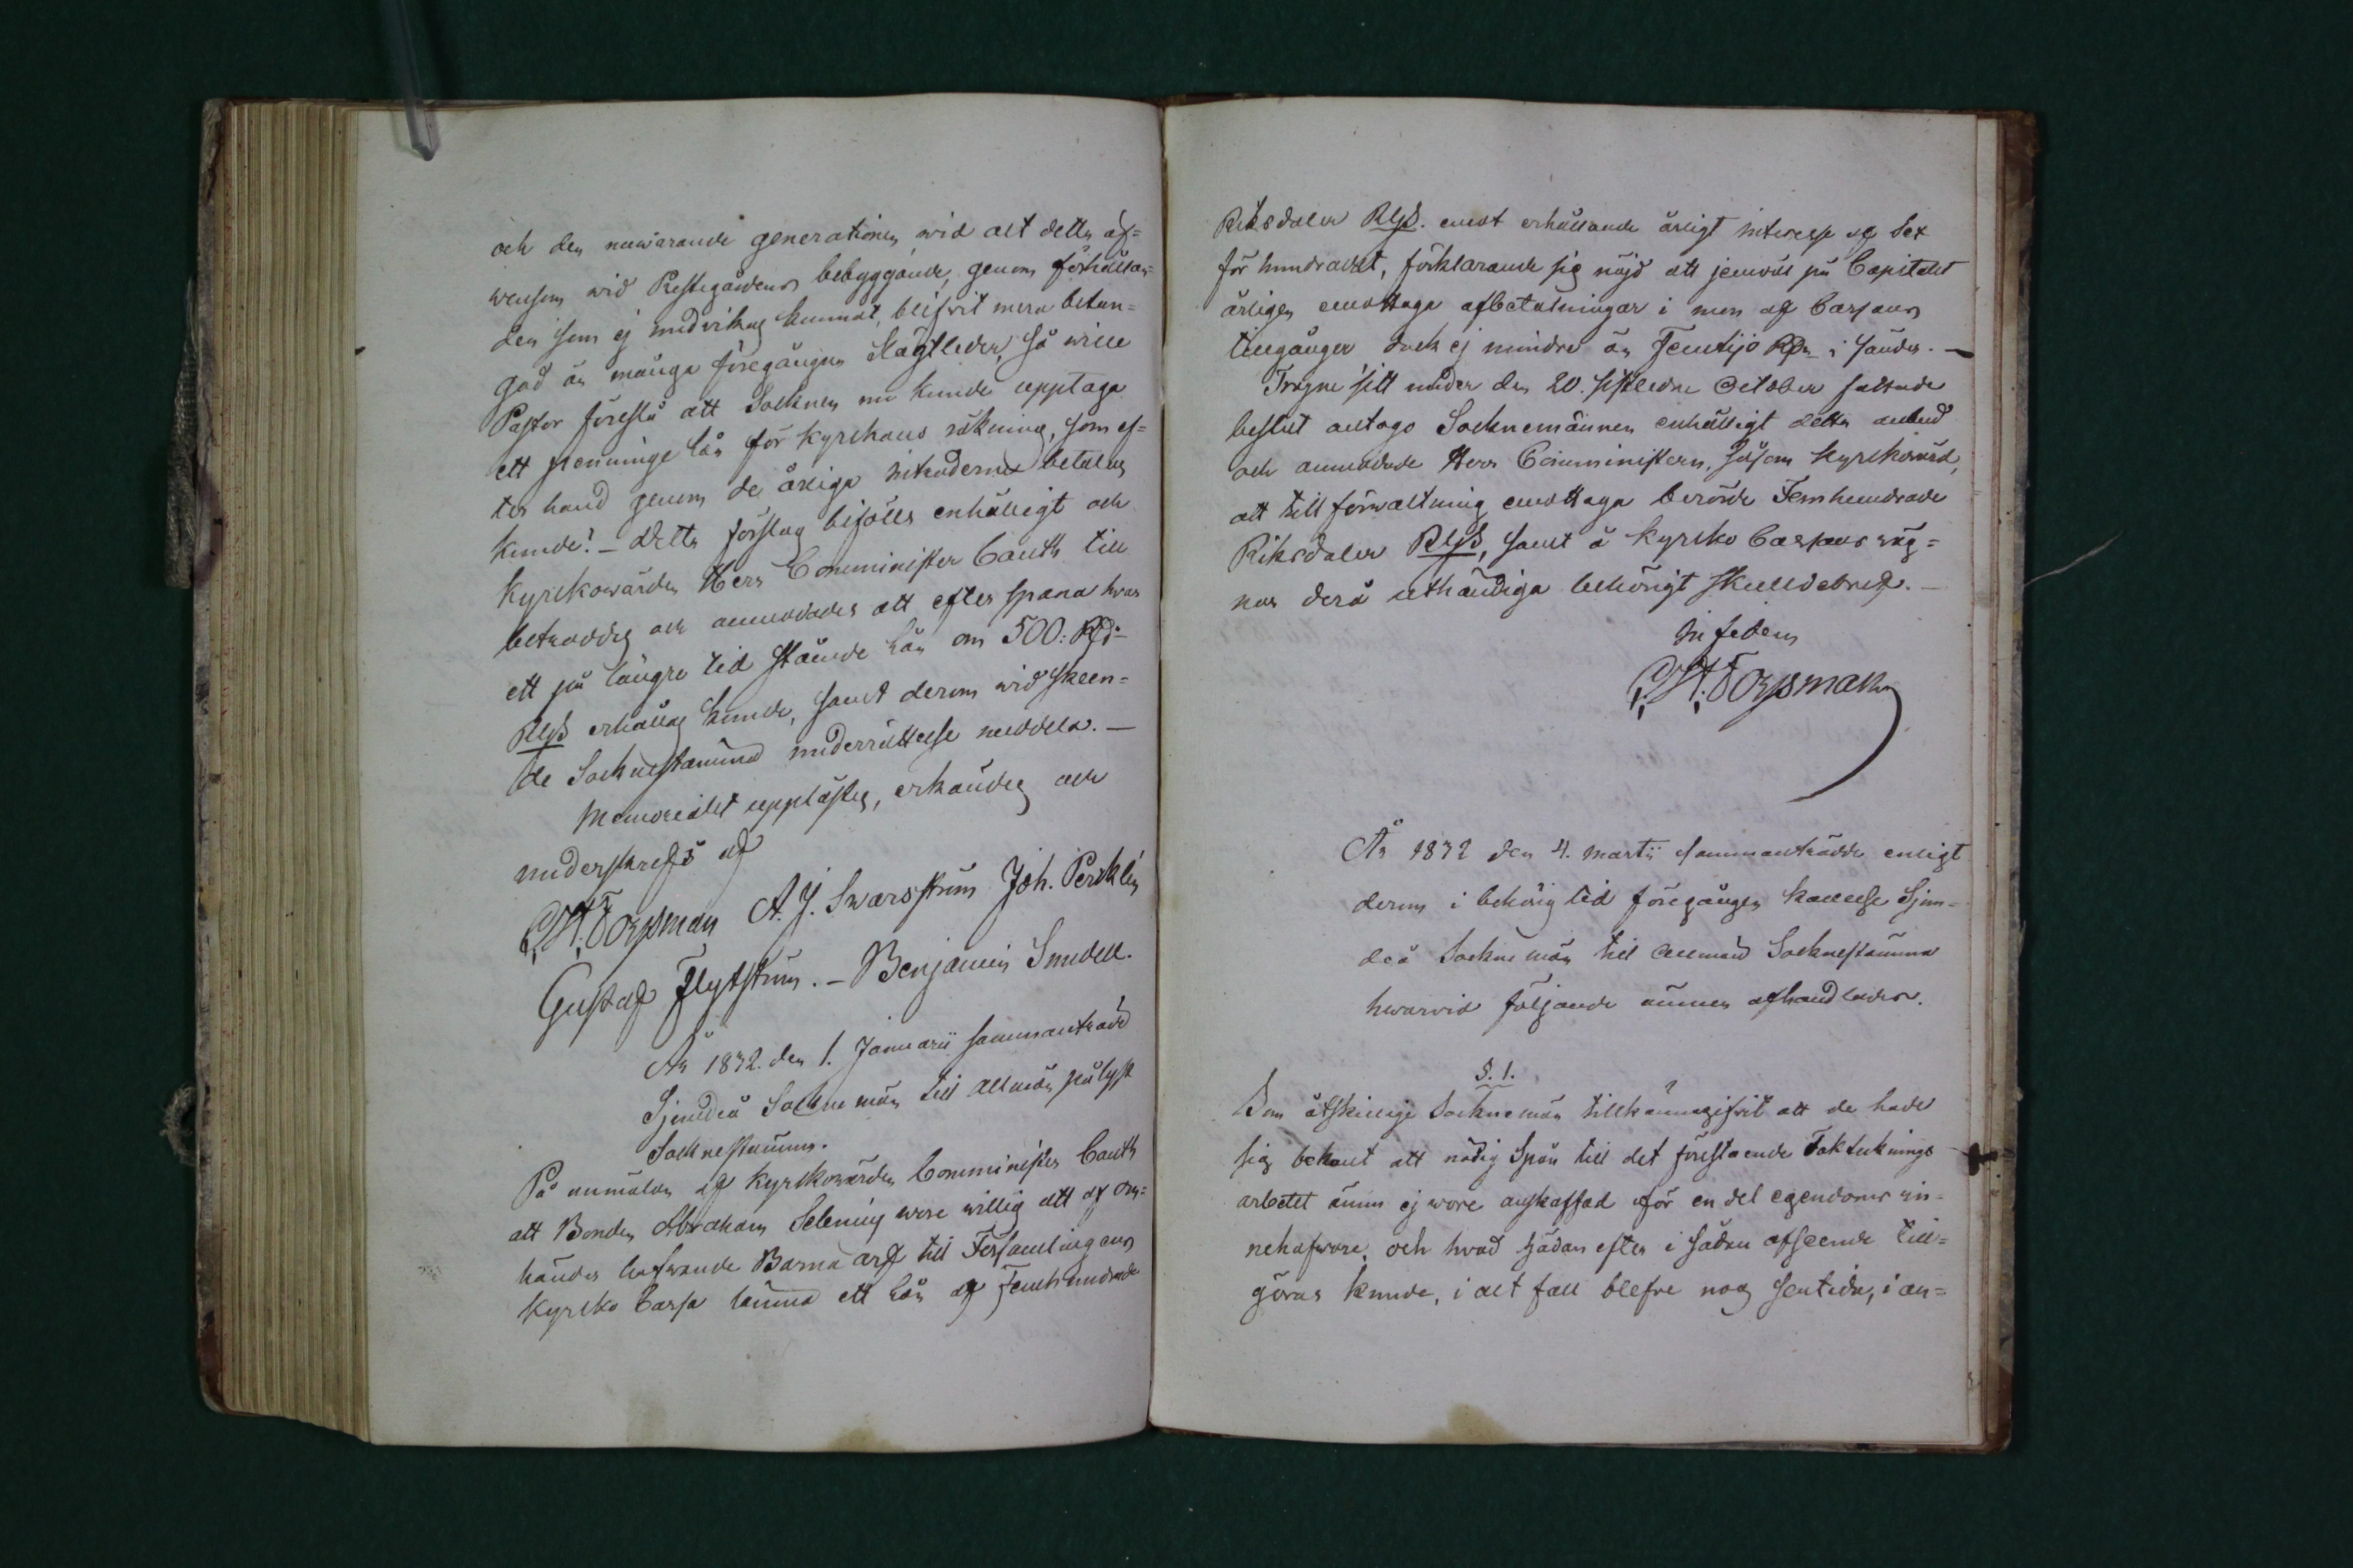 och den nuwarande generationen wid alt detta äf-
wensom wid Prestegårdens bebyggande, genom förhållan-
den som ej undvikas kunnat, blifvit mera betun-
gad än många föregångna Slägtleder, så wille
Pastor föreslå att Socknen nu kunde upptaga
ett penninge lån för Kyrckans räkning, som ef-
ter hand genom de årliga intraderna betalas
kunde! – Detta förslag bifölls enhälligt och
Kyrckowärden Herr Comminister Cauth till
betroddes och anmodades att efter spana hvar
ett på längre tid stående lån om 500: Rd:
RgS erhållas kunde, samt derom wid skeen-
de Socknestämma underrättelse meddela. –
Memorialet upplästes, erkändes och
underskrefs af
C. H. Forsman A. J. Swarsström Joh. Perklén
Gustaf Flytström. – Benjamin Smedell.
År 1832. den 1. Januarii sammanträdd
Sjundeå Sockne män till allmän pålyst
Socknestämma.
På anmälan af Kyrckowärden Comminister Cauth
att Bonden Abraham Selenius wore willig att af om-
händer hafwande Barna arf till Församlingens
Kyrcko Cassa lämna ett lån af Femhundrade
Riksdaler RgS. emot erhållande årligt interesse af Sex
för hundradet, förklarande sig nöjd att jemväl på Capitalet
årligen emottaga afbetalningar i mon af Cassans
tillgånger dock ej mindre än Femtijo Rdr i sänder. –
Trogne sitt under den 20. sistledne October fattade
beslut antogo Socknemännen enhälligt detta anbud
och anmodade Herr Comministern, såsom Kyrckowärd,
att till förwaltning emottaga berörde Femhundrade
Riksdaler RgS, samt å Kyrcko Cassans väg-
nar derå uthändiga behörigt skuldebref. –
In fidem
C. H. Forsman
År 1832 den 4. martii sammanträdde enligt
derom i behörig tid föregången kallelse Sjun-
deå Sockne män till allmän Socknestämma
hwarvid följande ämnen afhandlades.
§. 1.
Som åtskillige Sockne män tillkännagifvit att de hade
sig bekant att nödig Spån till det förestående Taktecknings
arbetet ännu ej wore anskaffad för en del egendoms in-
nehafware, och hvad sjädan efter i sådan afseende till-
göras kunde, i alt fall blefve nog sentida, i an-